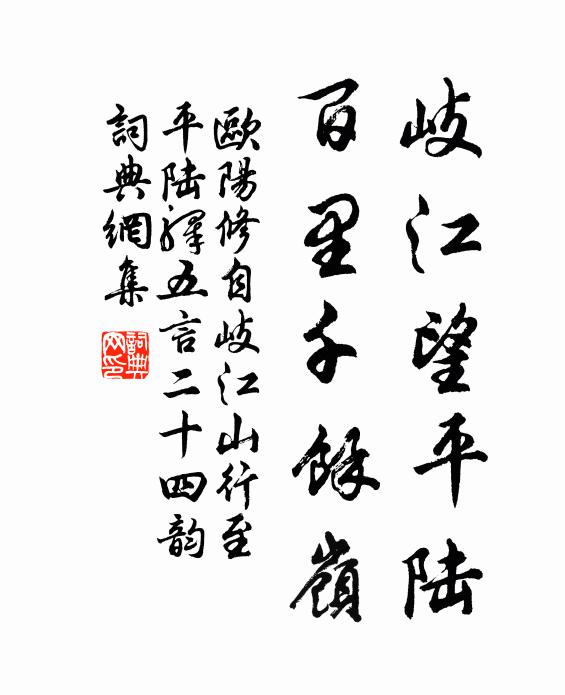 岐江望平陆
百里千餘嶺
歐陽修自岐江山行至
平陆驛五言二十四韵
詞典網集
詞典
网印